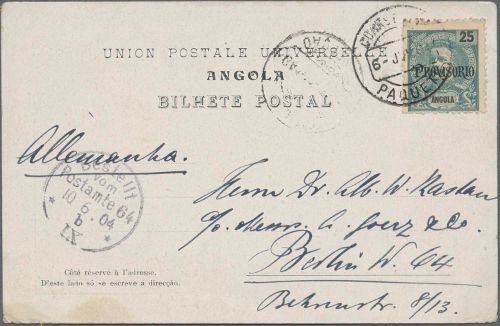 UNION POSTALE UNIVERSELLE
ANGOLA
BILHETE POSTAL
25
PROVISORIO
ANGOLA
PAQUE
Allemanha.
Bestellt
vom
Postamte 64
10 6.04
b
IX
Herrn Dr. Alb. W. Kastan
p/o Messrs. C. Goerz & Co.
Berlin W. 64
Behrenstr. 8/13.
Côté réservé à l'adresse.
D'este lado só se escreve a direcção.